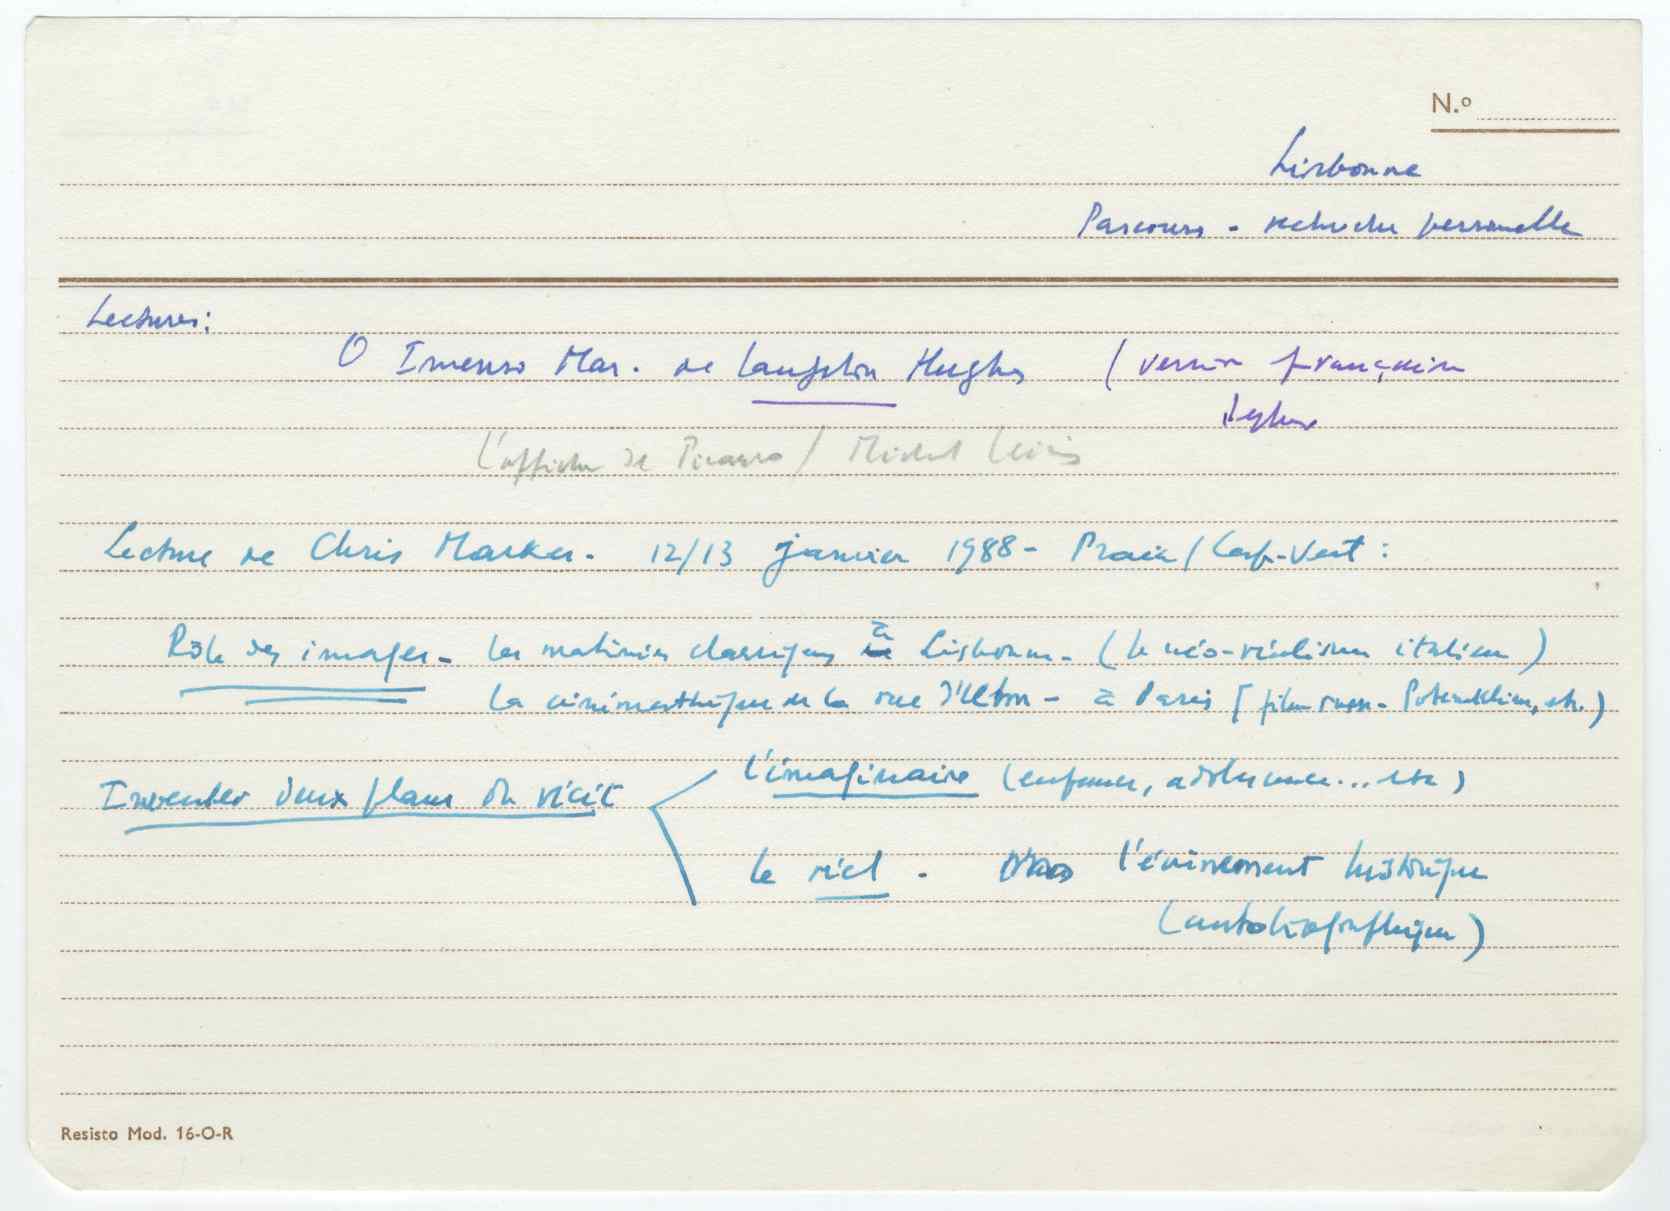 N.º
Lisbonne
Parcours - recherche personnelle
Lectures:
O Imenso Mar. de Langston Hughes (version française
L'affiche de Picasso / Michel Leiris
Lecture de Chris Marker. 12/13 janvier 1988 - Praia / Cap-Vert :
Rôle des images - les matinées classiques à Lisbonne - (le néo-réalisme italien)
La cinémathèque de la rue d'Ulm - à Paris (film russe - Potemkine, etc.)
Inventer deux plans du récit
l'imaginaire (enfance, adolescence... etc)
le réel . l'événement historique
(autobiographique)
Resisto Mod. 16-O-R